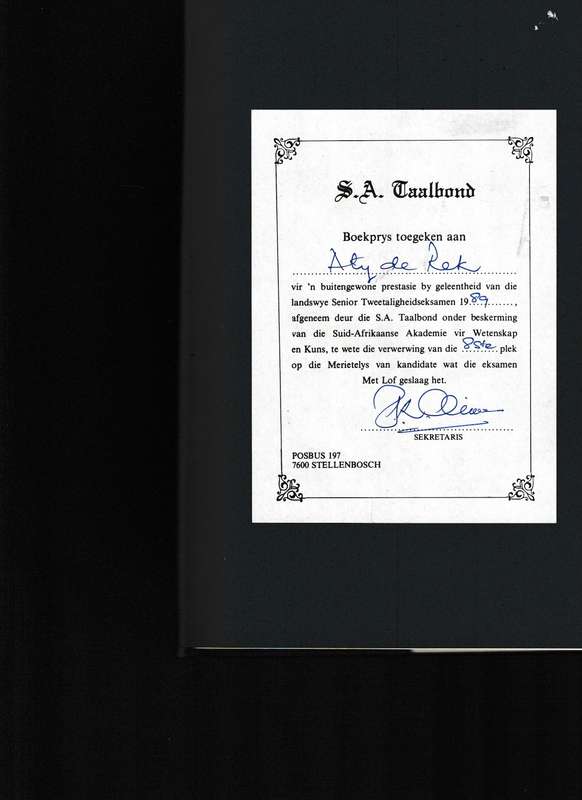 S.A. Taalbond
Boekprys toegeken aan
Aty de Rek
vir 'n buitengewone prestasie by geleentheid van die
landswye Senior Tweetaligheidseksamen 1989........,
afgeneem deur die S.A. Taalbond onder beskerming
van die Suid-Afrikaanse Akademie vir Wetenskap
en Kuns, te wete die verwerwing van die 8ste plek
op die Merietelys van kandidate wat die eksamen
Met Lof geslaag het.
SEKRETARIS
POSBUS 197
7600 STELLENBOSCH